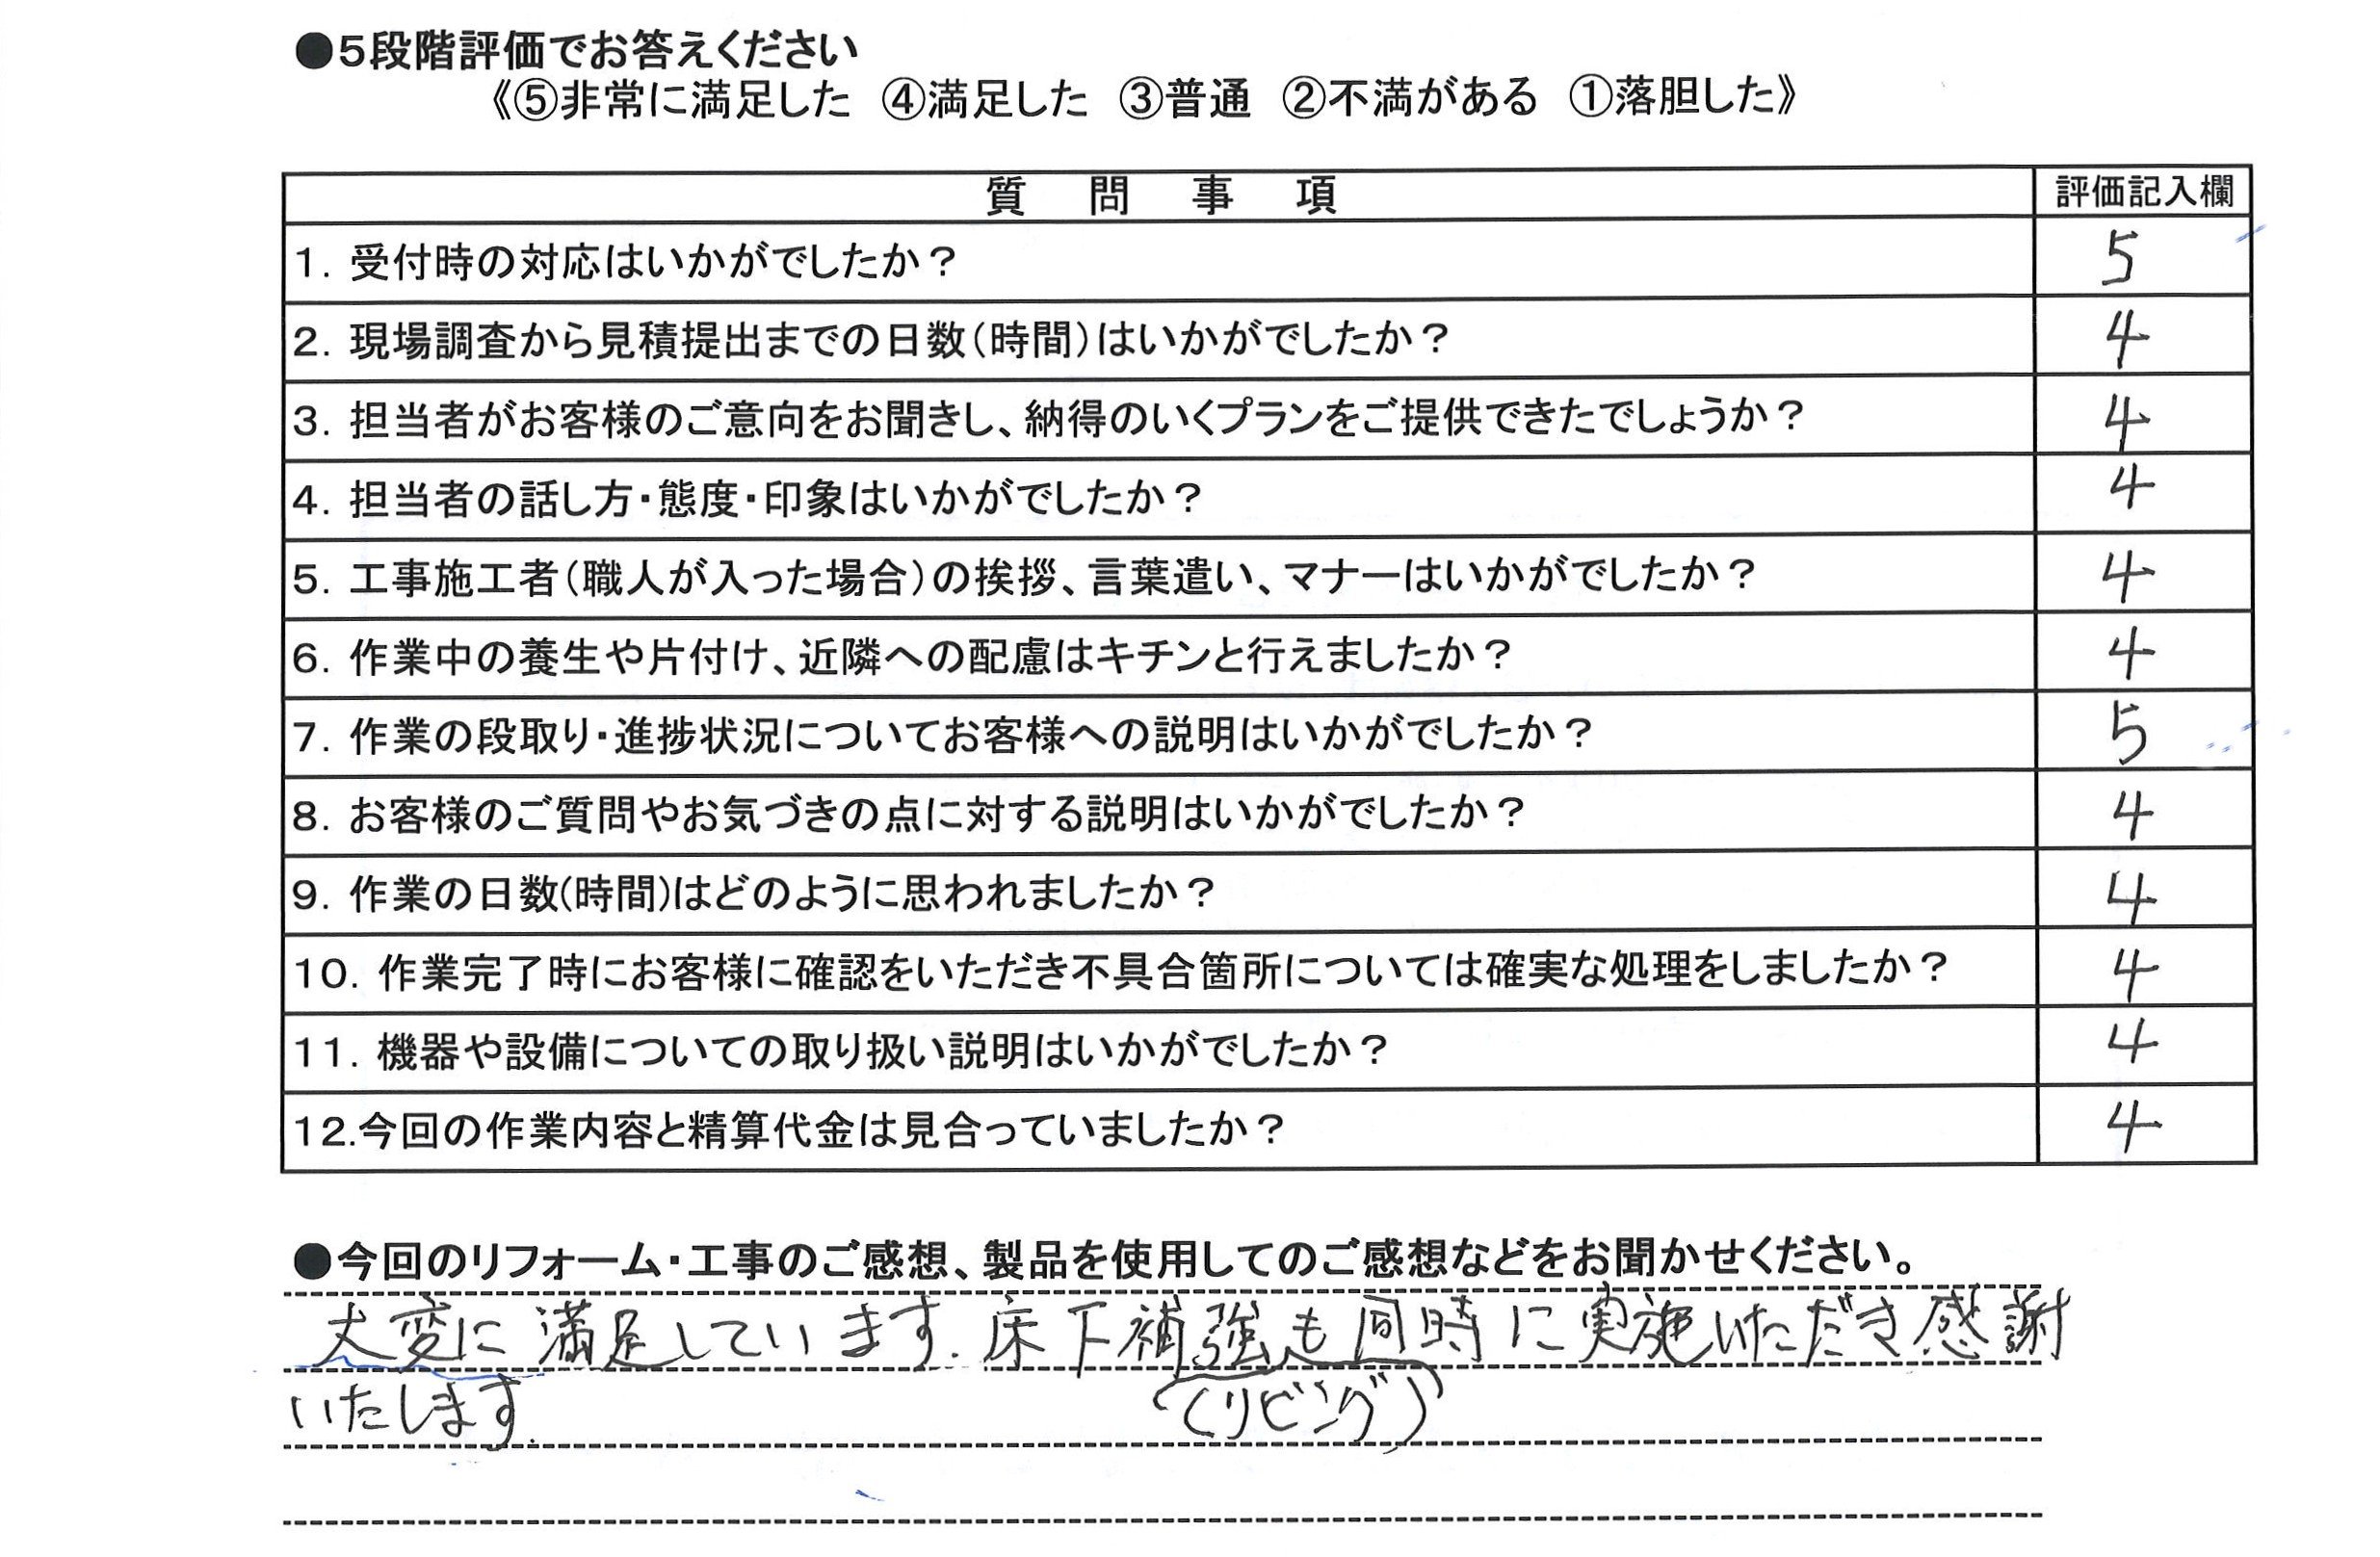 ●5段階評価でお答えください
《⑤非常に満足した ④満足した ③普通 ②不満がある ①落胆した》
質問事項 評価記入欄
1. 受付時の対応はいかがでしたか？ 5
2. 現場調査から見積提出までの日数(時間)はいかがでしたか？ 4
3. 担当者がお客様のご意向をお聞きし、納得のいくプランをご提供できたでしょうか？ 4
4. 担当者の話し方・態度・印象はいかがでしたか？ 4
5. 工事施工者(職人が入った場合)の挨拶、言葉遣い、マナーはいかがでしたか？ 4
6. 作業中の養生や片付け、近隣への配慮はキチンと行えましたか？ 4
7. 作業の段取り・進捗状況についてお客様への説明はいかがでしたか？ 5
8. お客様のご質問やお気づきの点に対する説明はいかがでしたか？ 4
9. 作業の日数(時間)はどのように思われましたか？ 4
10. 作業完了時にお客様に確認をいただき不具合箇所については確実な処理をしましたか？ 4
11. 機器や設備についての取り扱い説明はいかがでしたか？ 4
12.今回の作業内容と精算代金は見合っていましたか？ 4
●今回のリフォーム・工事のご感想、製品を使用してのご感想などをお聞かせください。
大変に満足しています.床下補強も同時に実施いただき感謝
いたします. (リビング)